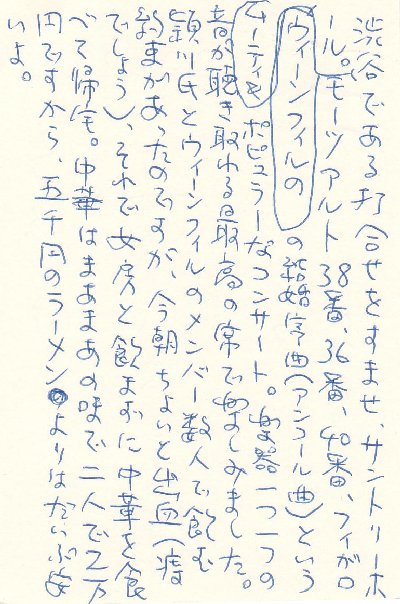 渋谷である打合せをすませ、サントリーホ
ール。モーツアルト38番、36番、40番、フィガロ
ウィーンフィルの
の結婚序曲(アンコール曲)という
ムーティを
ポピュラーなコンサート。楽器一つ一つの
音が聴き取れる最高の席で楽しみました。
川氏とウィーンフィルのメンバー数人で飲む
約束があったのですが、今朝ちょいと出血(痔
でしょう)、それで女房と飲まずに中華を食
べて帰宅。中華はまあまあの味で二人で2万
円ですから、五千円のラーメンよりはだいぶ安
いよ。